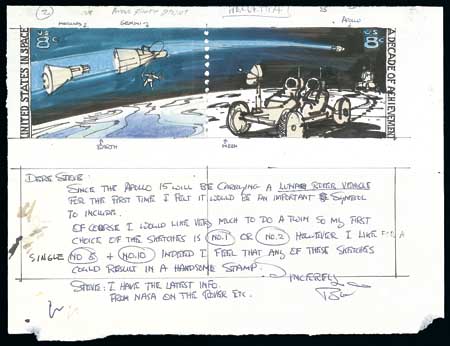 2
MERCURY
GEMINI
APOLLO
UNITED STATES IN SPACE
US 8c
US 8c
A DECADE OF ACHIEVEMENT
EARTH
MOON
DEAR STEVE:
SINCE THE APOLLO 15 WILL BE CARRYING A LUNAR ROVER VEHICLE
FOR THE FIRST TIME I FELT IT WOULD BE AN IMPORTANT SYMBOL
TO INCLUDE.
OF COURSE I WOULD LIKE VERY MUCH TO DO A TWIN SO MY FIRST
CHOICE OF THE SKETCHES IS NO.1 OR NO.2 HOWEVER I LIKE FOR A
SINGLE NO 8 + NO.10 INDEED I FEEL THAT ANY OF THESE SKETCHES
COULD RESULT IN A HANDSOME STAMP.
SINCERELY
STEVE: I HAVE THE LATEST INFO.
FROM NASA ON THE ROVER ETC.